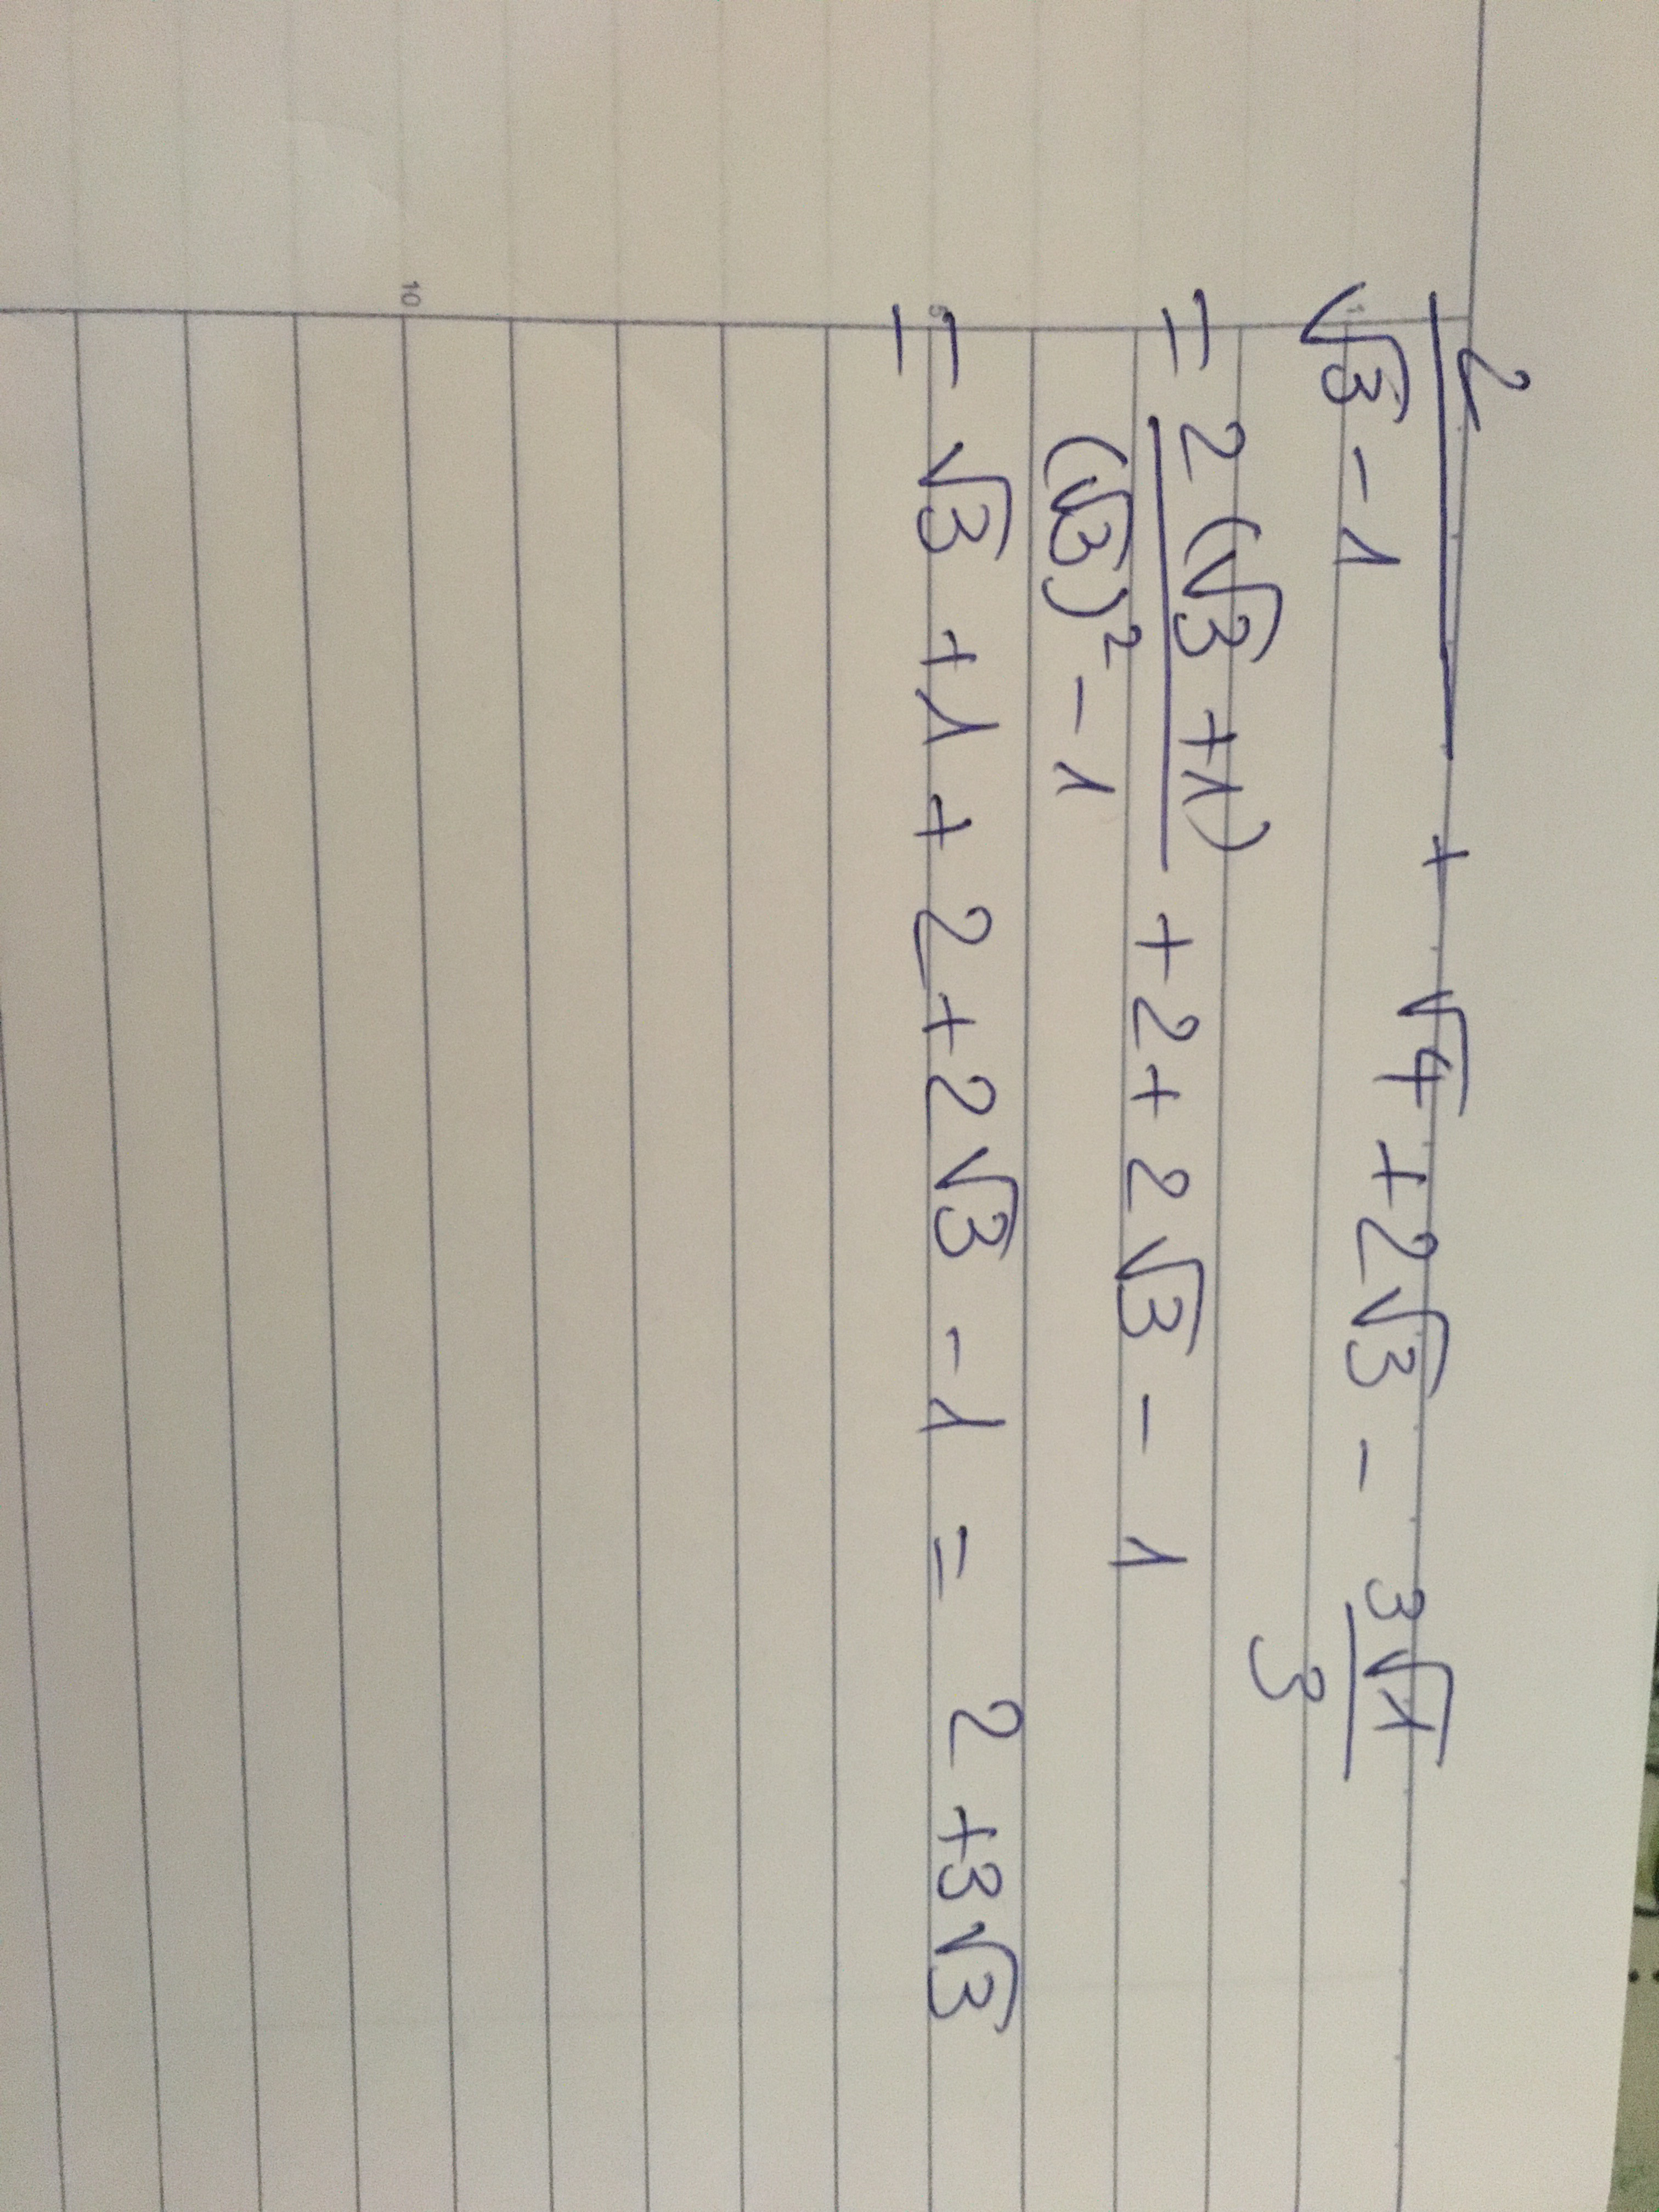 2/(√3 - 1) + √4 + 2√3 - 3√1/3
= 2(√3 + 1)/((√3)² - 1) + 2 + 2√3 - 1
= √3 + 1 + 2 + 2√3 - 1 = 2 + 3√3
1
5
10